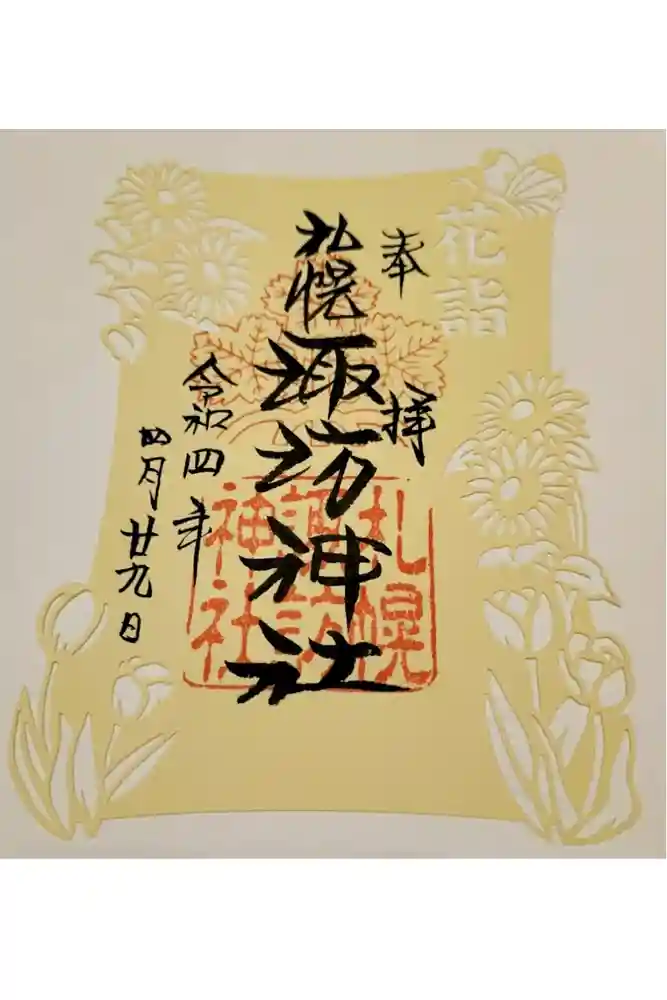 花詣
奉拝
札幌
諏訪神社
札幌
諏訪
神社
令和四年
四月廿九日